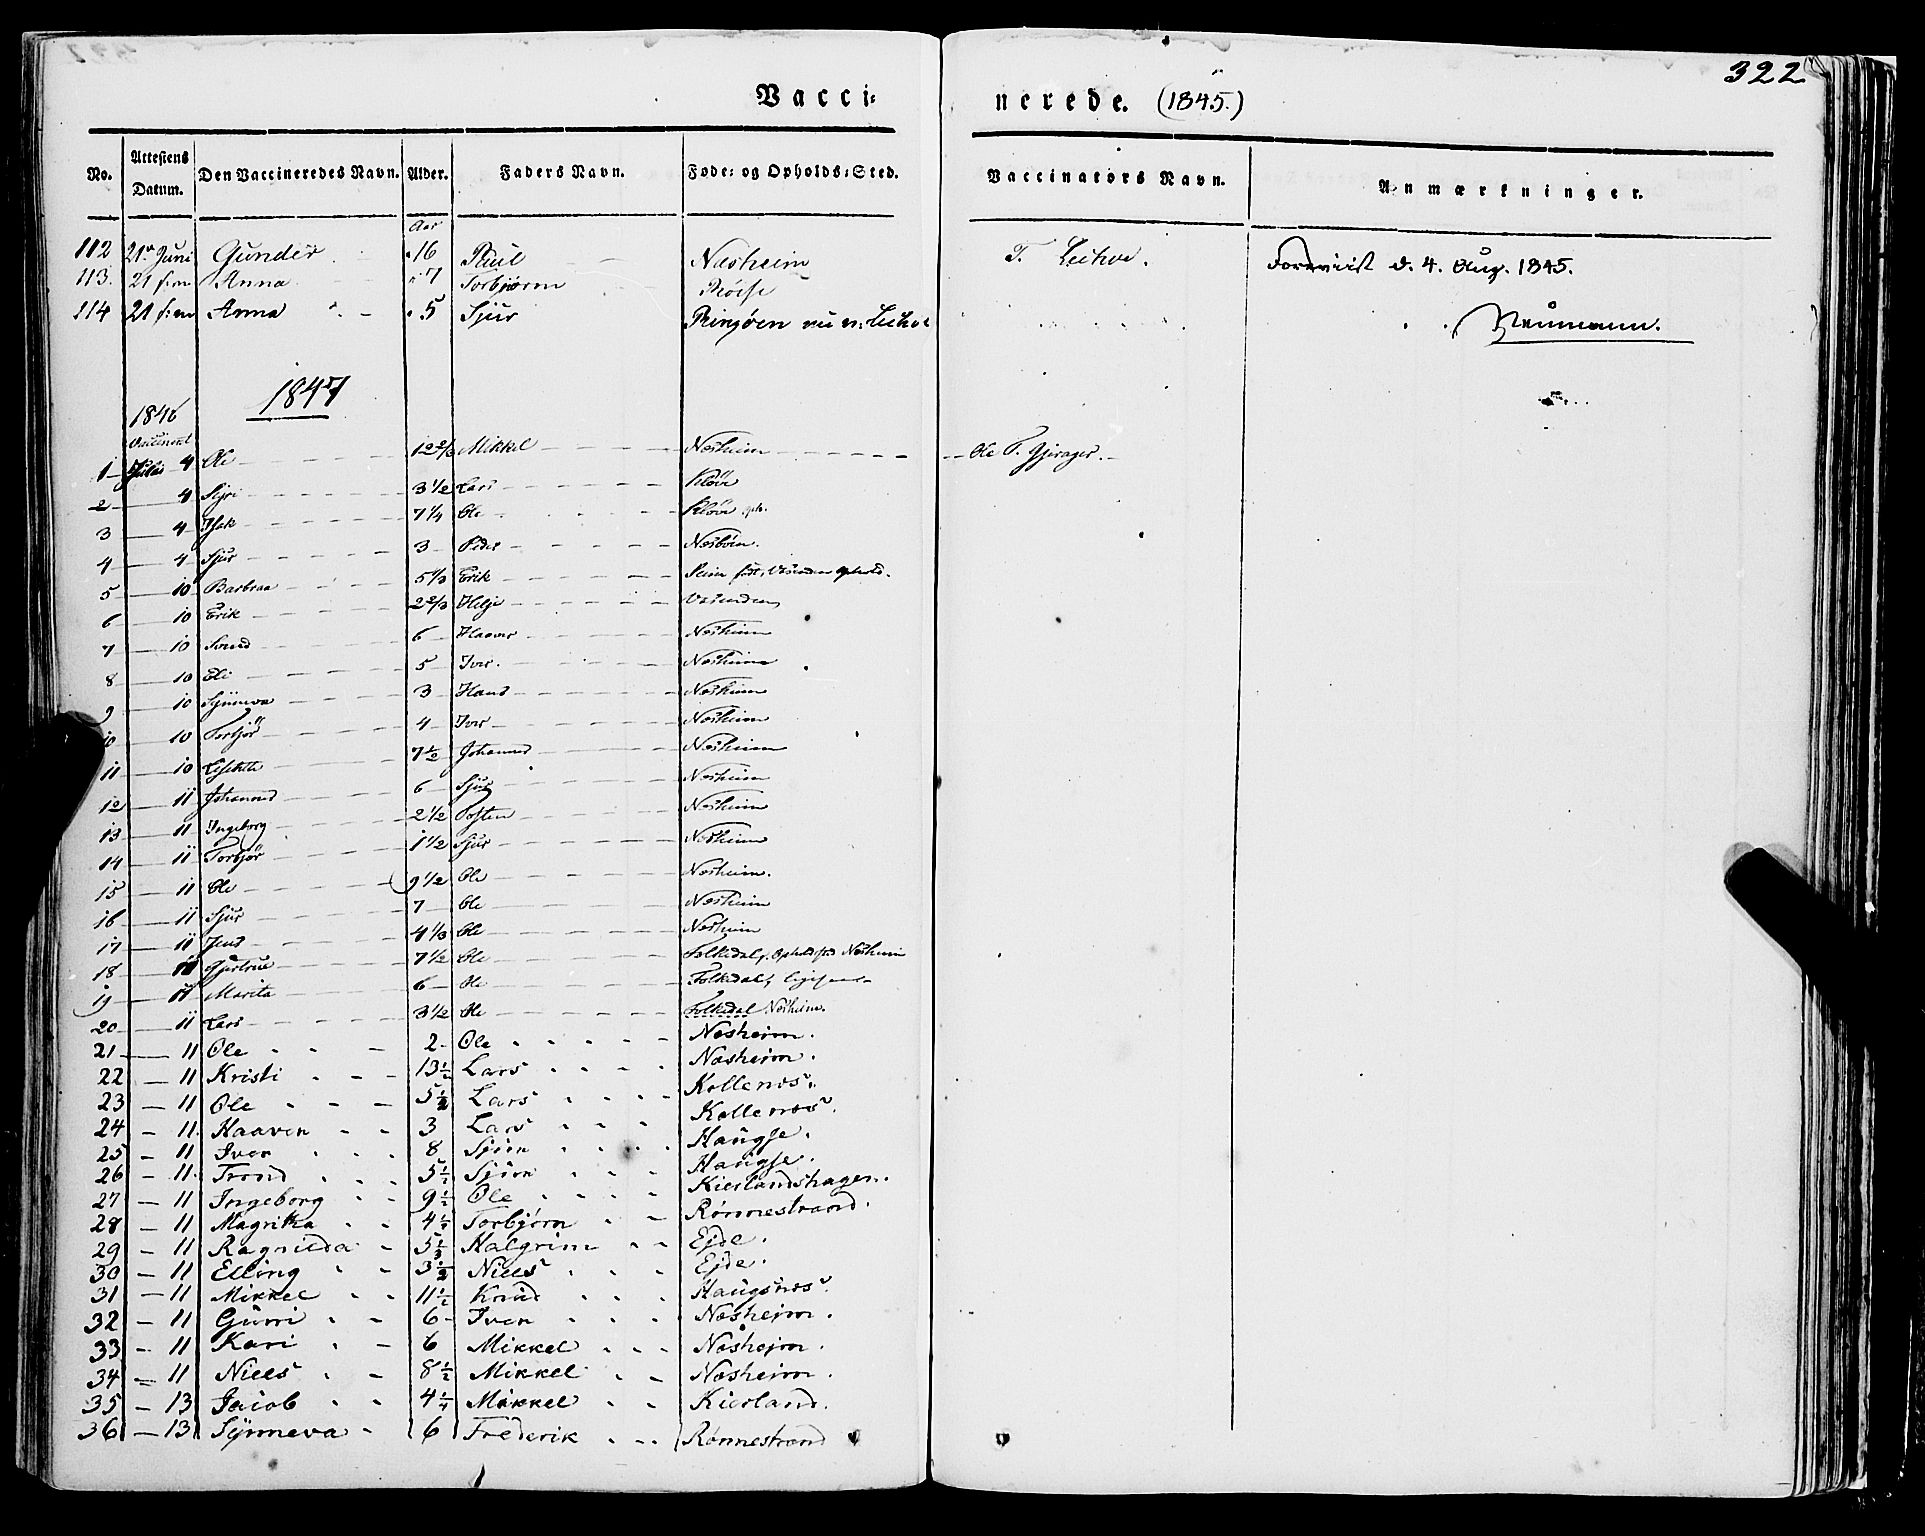 322
Vacci: nerede. (1845.)
No. Attestens Datum. Den Vaccineredes Navn. Alder. Faders Navn. Føde: og Opholds:Sted. Vaccinators Navn. Anmærkninger.
Aar
112 21de Juni Gunder 16 Poul Næsheim T. Leihve. Foreviist d. 4. Aug. 1845.
113. 21 s:m Anna 7 Torbjørn
114 21 s:m Anna 5 Sjur Ringøen nu n: Leihve Neumann.
1847
1846
1 Julii 4 Ole 12 2/3 Mikkel Nesheim Ole T. Gjerager.
2 4 Sigri 3 1/2 Lars Kløve
3 4 Isak 7 1/4 Ole Kløve oph.
4 4 Sjur 3 Peder Nesbøen.
5 10 Barbraa 5 1/3 Erik Seim født, Vasenden Ophold.
6 10 Erik 2 2/3 Helje Vasenden
7 10 Svend 6 Haaver Nesheim
8 10 Eli 5 Iver. Nesheim
9 10 Synneva 3 Hans Nesheim
10 10 Torbjør 4 Iver Nesheim
11 10 7 1/2 Johannes Nesheim
12 11 Johannes 6 Sjur Nesheim
13 11 Ingeborg 2 1/2 Tosten Nesheim
14 11 Torbjør 1 1/2 Sjur Nesheim
15 11 Ole 9 1/2 Ole Nesheim.
16 11 Sjur 7 Ole Nesheim
17 11 Jens 4 1/3 Ole Nesheim
18 11 Gjertrue 7 1/2 Ole Folkedal, Opholdsted Nesheim
19 11 Marita 6 Ole Folkedal, ligesaa
20 11 Lars 3 1/2 Ole Folkedal Nesheim.
21 11 Ole 2 Ole Nesheim.
22 11 Kristi 13 1/2 Lars Nesheim.
23 11 Ole 5 1/2 Lars Kollenos.
24 11 Haaven 3 Lars Kollenos.
25 11 Iver 8 Sjün Haugse.
26 11 Trond 5 1/2 Sjün Haugse.
27 11 Ingeborg 9 1/2 Ole Kierlandshagen.
28 11 Magritha 4 1/2 Torbjørn Rønnestrand.
29 11 Ragnilda 5 1/3 Halgrim Ejde.
30 11 Elling 3 1/2 Niels Ejde.
31 11 Mikkel 11 1/2 Knud Haugsnos.
32 11 Gurri 6 Iver Nesheim.
33 11 Kari 6 Mikkel Nesheim.
34 11 Niels 8 1/2 Mikkel Nesheim.
35 13 Jacob 4 1/4 Mikkel Kierland.
36 13 Synneva 6 Frederik Rønnestrand